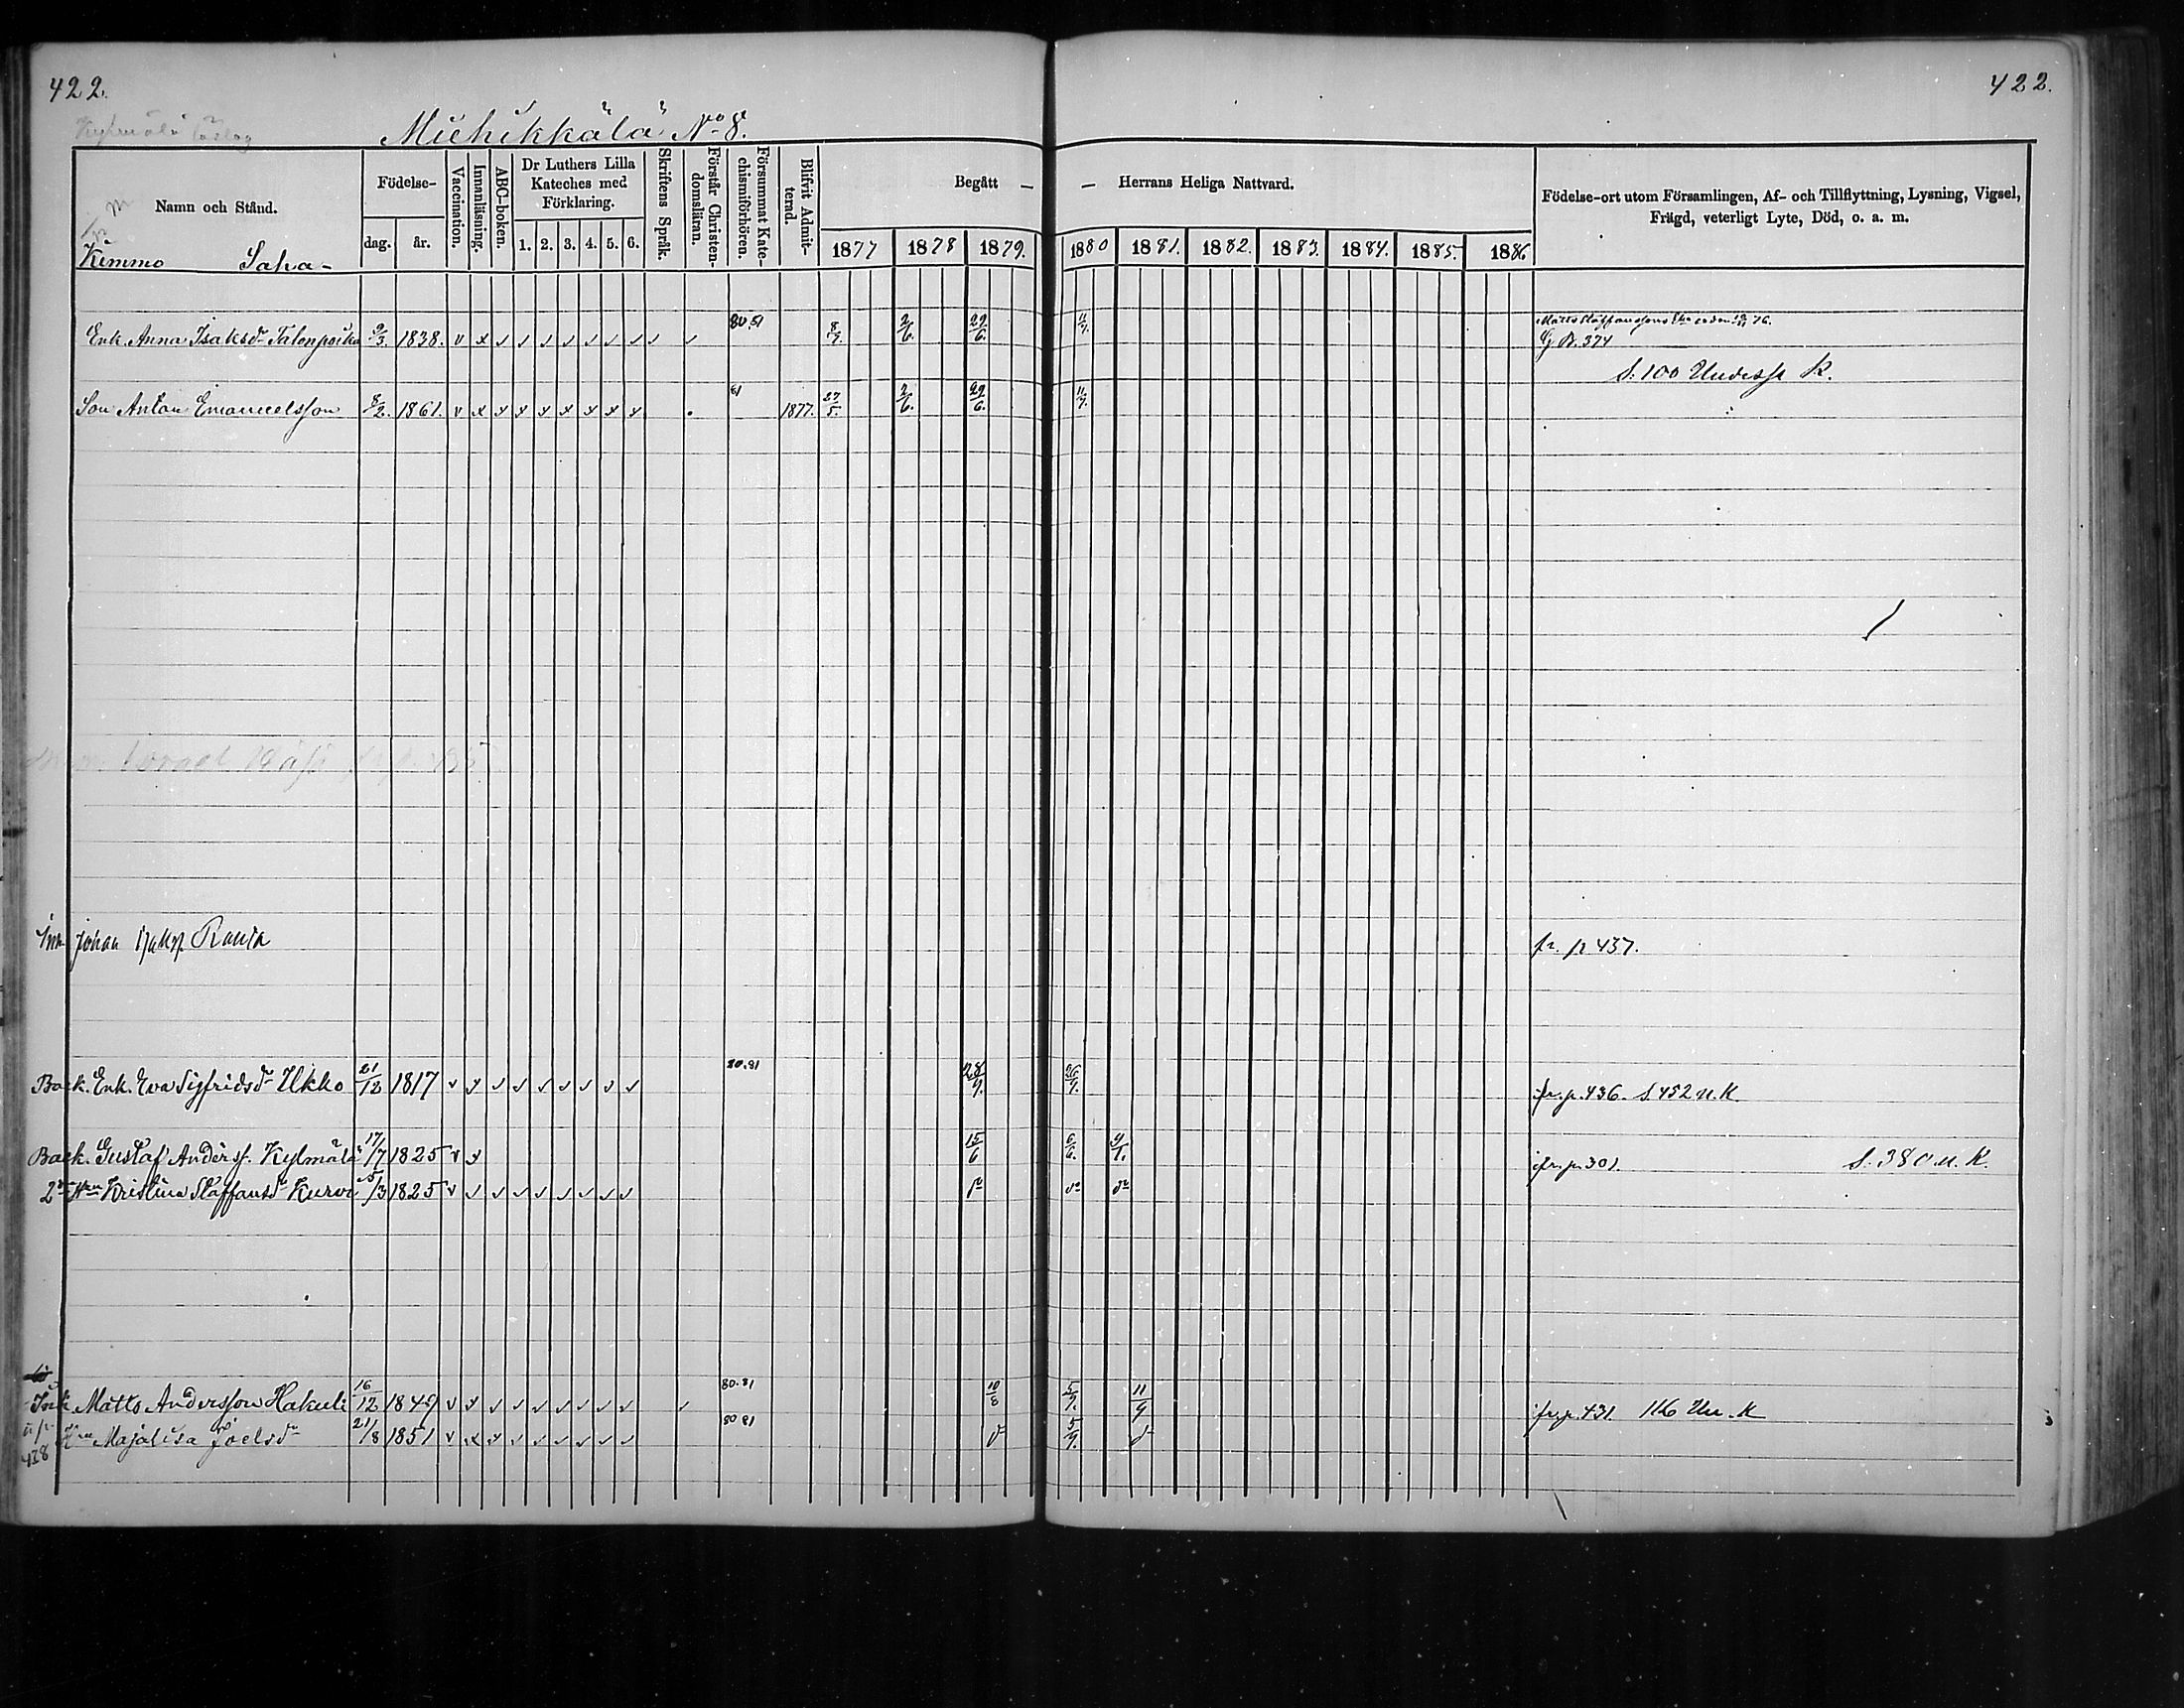 422.
422.
Miehikkälä No 8.
Namn och Stånd.
Födelse-
dag.
år.
Vaccination.
Innanläsning.
ABC-boken.
Dr Luthers Lilla Kateches med Förklaring.
1. 2. 3. 4. 5. 6.
Skriftens Språk.
Förstår Christendomsläran.
Försummat Katechismiförhören.
Blifvit Admitterad.
Begått — — Herrans Heliga Nattvard.
1877 1878 1879. 1880 1881. 1882. 1883. 1884. 1885. 1886
Födelse-ort utom Församlingen, Af- och Tillflyttning, Lysning, Vigsel,
Frägd, veterligt Lyte, Död, o. a. m.
Kimmo Saha-
Enk. Anna Isaksdr Talonpoika 9/3 1838. v x v v v v v v v v v 80.81 8/7. 2/6. 29/6. 11/7.
G B. 374
S. 100 K.
Son Anton Emanuelsson 8/2. 1861. v x x x x x x x x 81 1877. 27/5. 2/6. 29/6. 11/7.
Johan Rauja fr. p 437.
Back. Enk. Eva Sigfridsdr Ukko 21/12 1817 v x v v v v v v v 80.81 28/9. 26/9. fr. p. 436. S. 452 u. K.
Back. Gustaf Anderss. Kylmälä 17/7 1825 v x 15/6 6/6. fr. p. 301 S. 380 u. K.
Kristina Staffansdr 5/3 1825 v v v v v v v v v
Inh. Matts Andersson Hakuli 16/12 1849 v x v v v v v v v v 80.81 10/8 5/9. 11/9 fr. p. 431. 116 K
Hu Majalisa Joelsdr 21/8 1851 v x x v v v v v v 80 81 5/9.
438